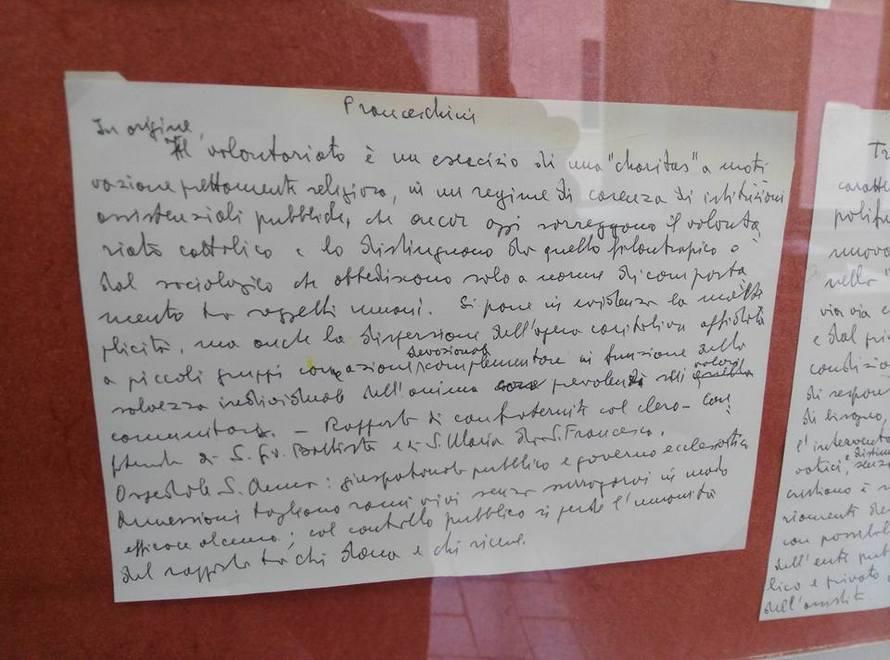 Franceschini
In origine,
Il volontariato è un esercizio di una "charitas" a moti
vazione prettamente religiosa, in un regime di carenza di istituzioni
assistenziali pubbliche, che ancor oggi sorreggono il volonta
riato cattolico e lo distinguono da quello filantropico o
dal sociologico che obbediscono solo a norme di comporta
mento tra soggetti umani. Si pone in evidenza la molte
plicità, ma anche la dispersione dell'opera caritativa affidata
a piccoli gruppi come azione devozionale complementare in funzione della
salvezza individuale dell'anima prevalendi sui valori
comunitari. - Rapporti di confraternite col clero - Con
fraternite di S. Gv. Battista e di S. Maria di S. Francesco.
Ospedale S. Anna: giuspatronato pubblico e governo ecclesiastico
Annessioni tagliano rami vivi senza surrogarvi in modo
efficace alcuno; col controllo pubblico si perde l'umanità
del rapporto tra chi dona e chi riceve.
Tr
caratte
polit
nuovo
nella
via via e
e dal pri
condizio
di respon
di bisogno,
l'intervento
vatici,
cristiano è
riamenti de
con possibil
dell'ente pub
lico e privato
dell'assist.